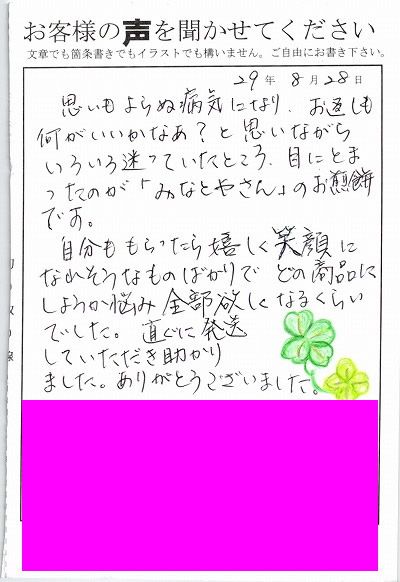 お客様の声を聞かせてください
文章でも箇条書きでもイラストでも構いません。ご自由にお書き下さい。
29年 8月28日
思いもよらぬ病気になり、お返しも
何がいいかなあ？と思いながら
いろいろ迷っていたところ、目にとま
ったのが「みなとやさん」のお煎餅
です。
自分ももらったら嬉しく笑顔に
なれそうなものばかりで どの商品に
しようか悩み 全部欲しくなるくらい
でした。 直ぐに発送
していただき助かり
ました。ありがとうございました。